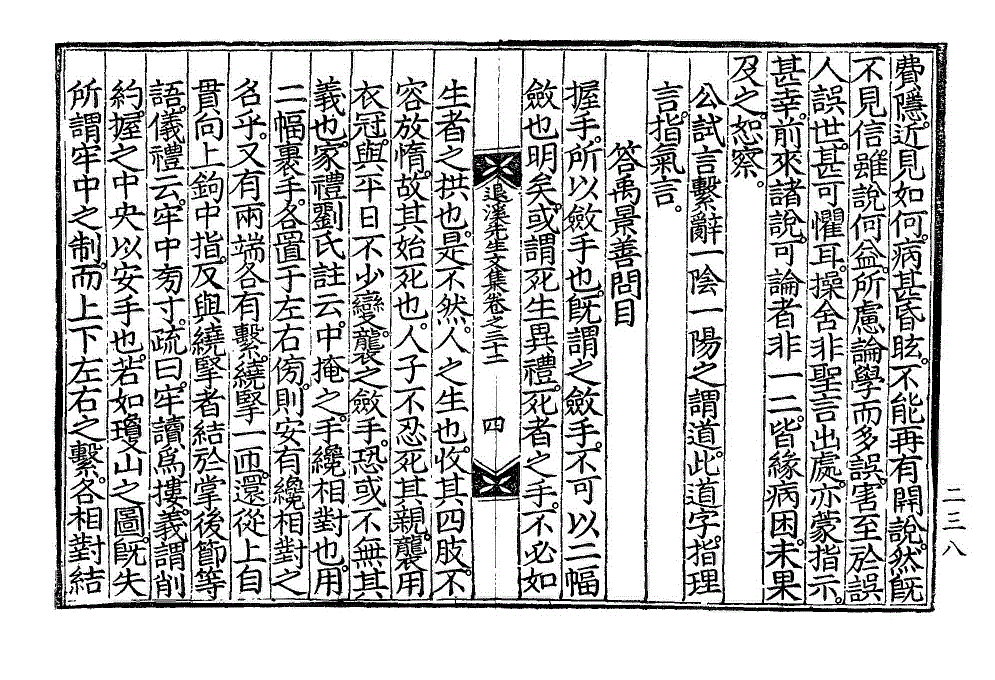 費隱。近見如何。病甚昏眩。不能再有開說。然旣
不見信。雖說何益。所慮論學而多誤。害至於誤
人誤世。甚可懼耳。操舍非聖言出處。亦蒙指示。
甚幸。前來諸說。可論者非一二。皆緣病困。未果
及之。恕察。
公試言繫辭一陰一陽之謂道。此道字。指理
言。指氣言。
答禹景善問目
握手。所以斂手也。旣謂之斂手。不可以二幅
斂也明矣。或謂死生異禮。死者之手。不必如
退溪先生文集卷之三十二 四
生者之拱也。是不然。人之生也。收其四肢。不
容放惰。故其始死也。人子不忍死其親。襲用
衣冠。與平日不少變。襲之斂手。恐或不無其
義也。家禮劉氏註云。中掩之。手纔相對也。用
二幅裹手。各置于左右傍。則安有纔相對之
名乎。又有兩端各有繫。繞掔一匝。還從上自
貫向上鉤中指。反與繞掔者結於掌後節等
語。儀禮云。牢中旁寸。疏曰。牢讀爲摟。義謂削
約。握之中央以安手也。若如瓊山之圖。旣失
所謂牢中之制。而上下左右之繫。各相對結
二三八